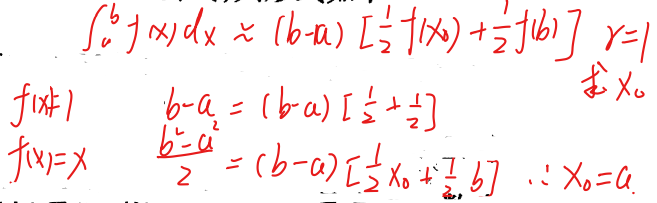 ∫_a^b f(x)dx ≈ (b-a) [½ f(x₀) + ½ f(b)] r=1
求 x₀
f(x)=1 b-a = (b-a) [½ + ½]
f(x)=x (b²-a²)/2 = (b-a) [½ x₀ + ½ b] ∴ x₀=a